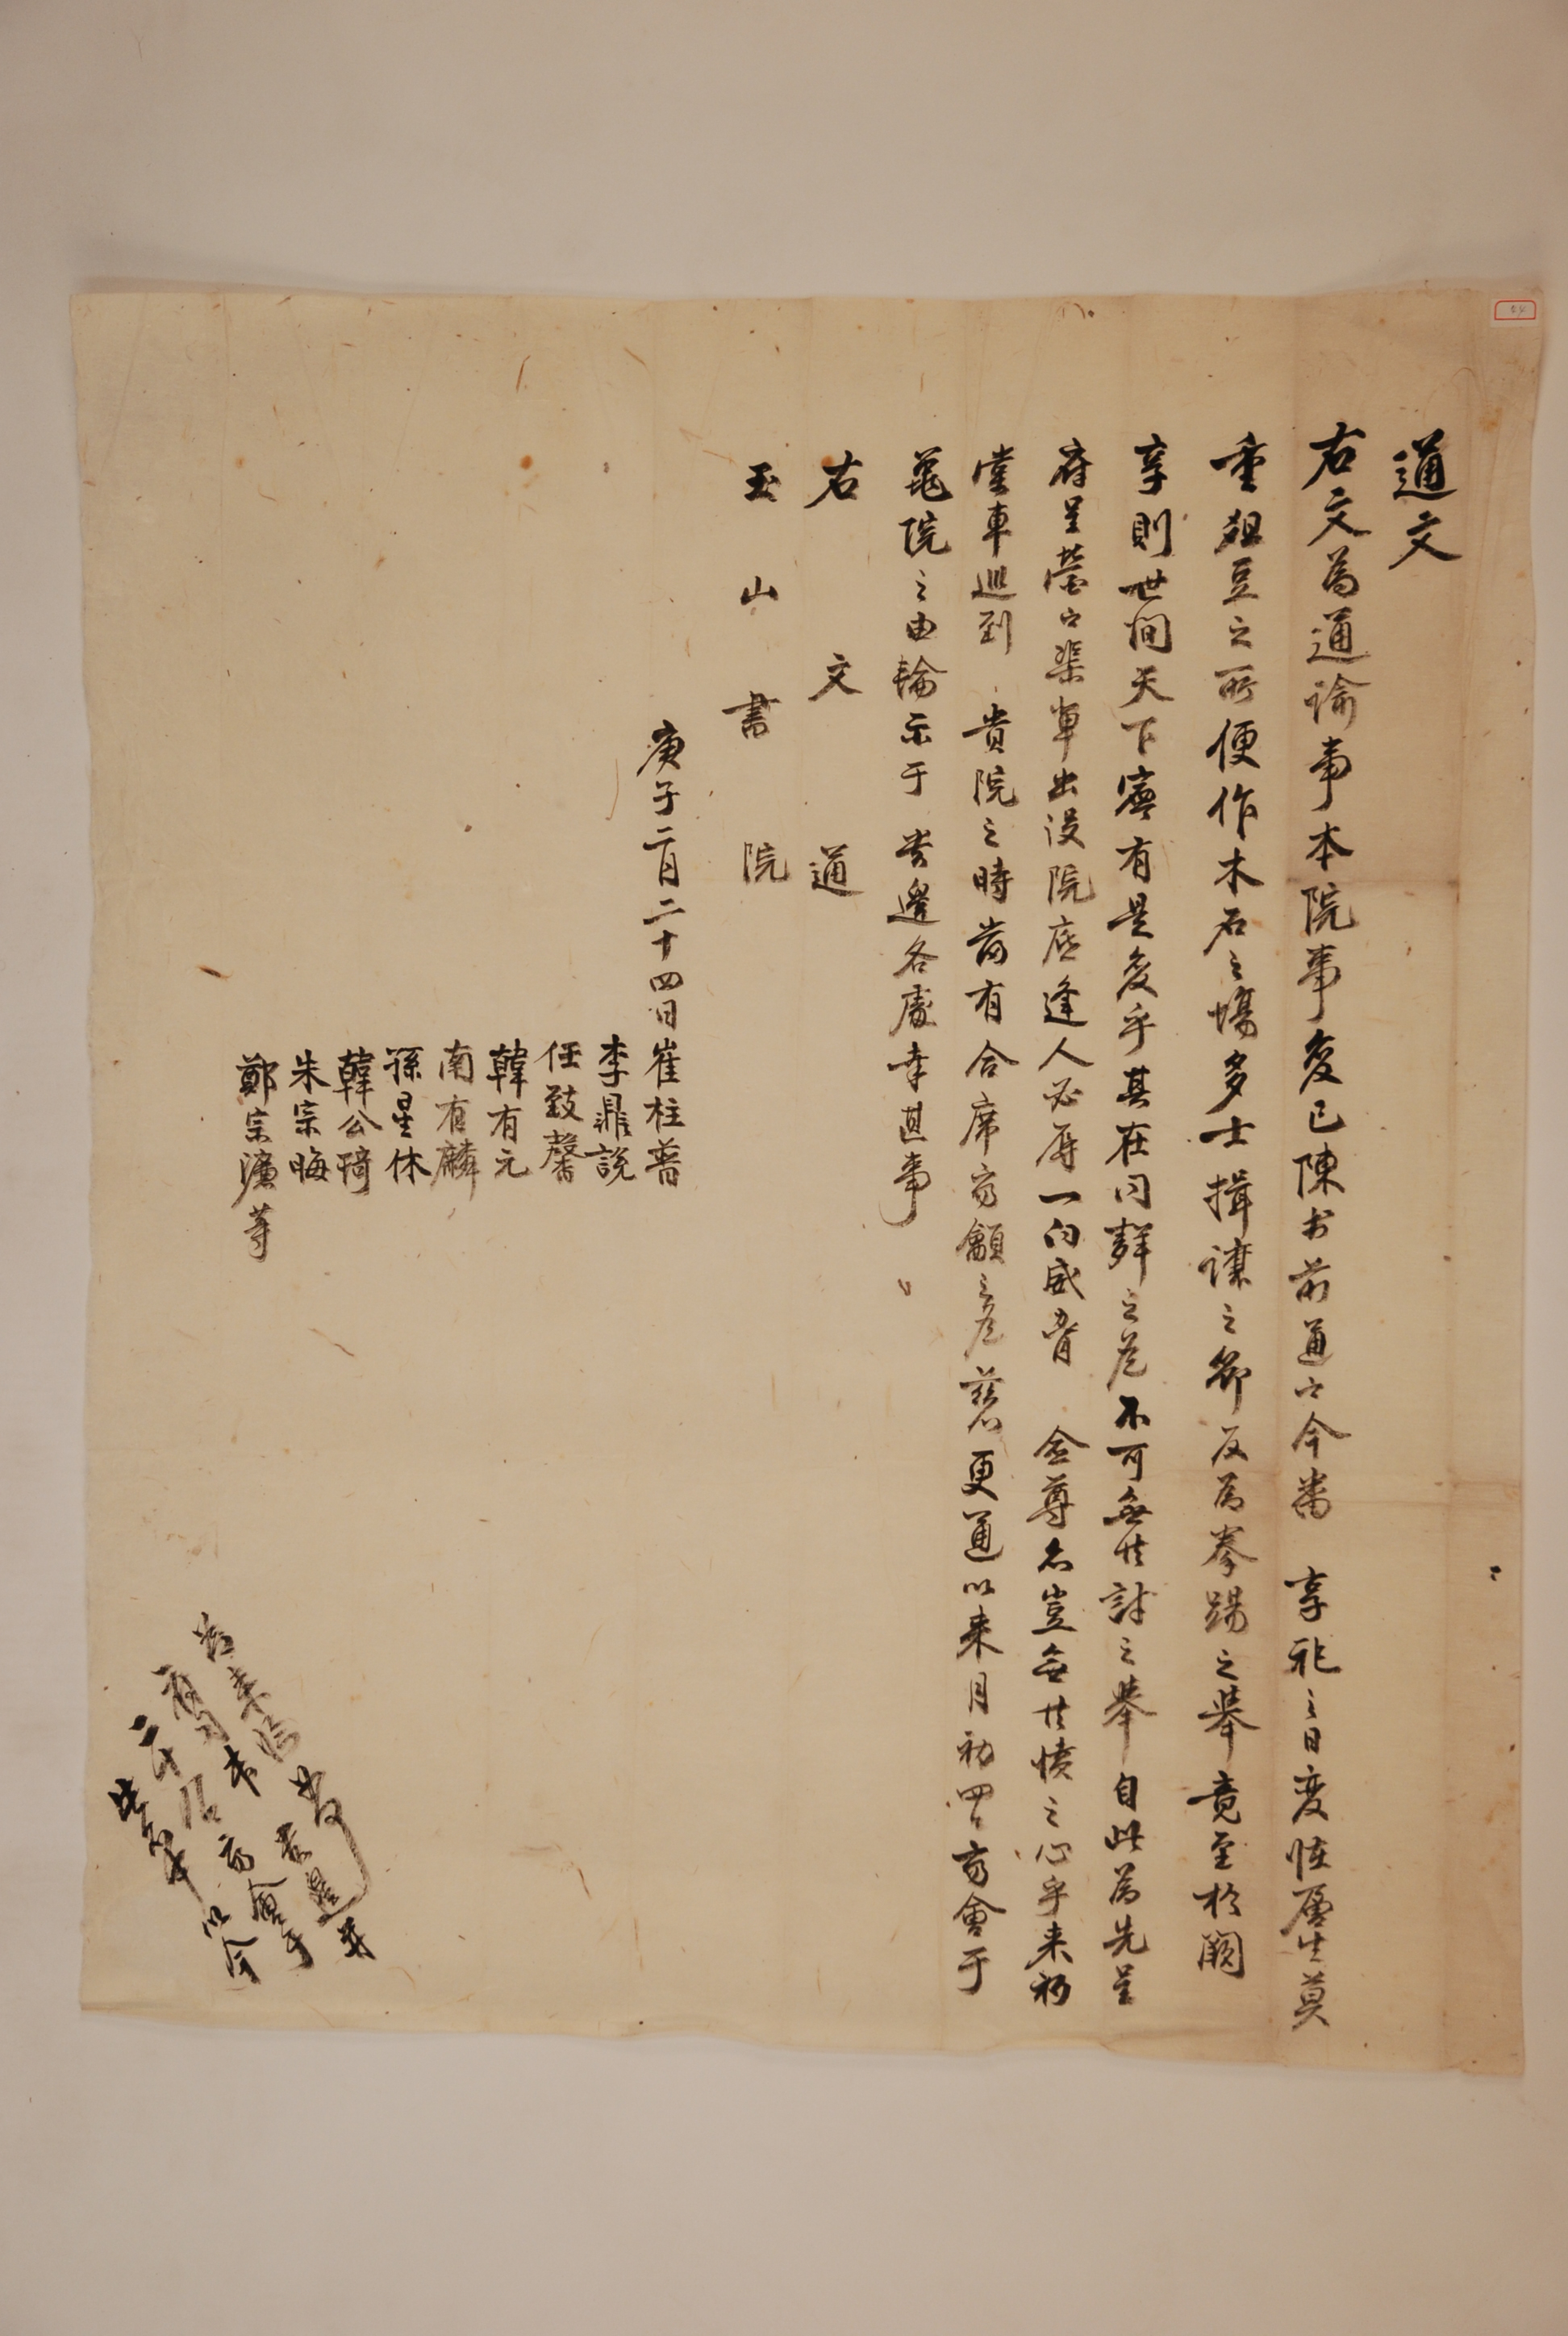 通文
右文爲通諭事本院事変已陳於前通中今番 享祀之日変怪層生莫
重俎豆之所便作木石之場多士揖讓之節反爲拳踢之擧竟至於闕
享則世間天下寧有是変乎其在同群之 不可無共討之擧自此爲先呈
府呈營中渠輩出沒院底逢人必辱一向威脅 僉尊名豈無共憤之心乎來初
堂車巡到 貴院之時當有合席 籲之 更通以來月初四日齊會于
龜院之由輪示于 貴邊各處幸甚事
右文通
玉山書院
庚子二月二十四日 崔柱普
李鼎說
任致馨
韓有元
南有麟
孫星休
韓公琦
朱宗晦
鄭宗濂等